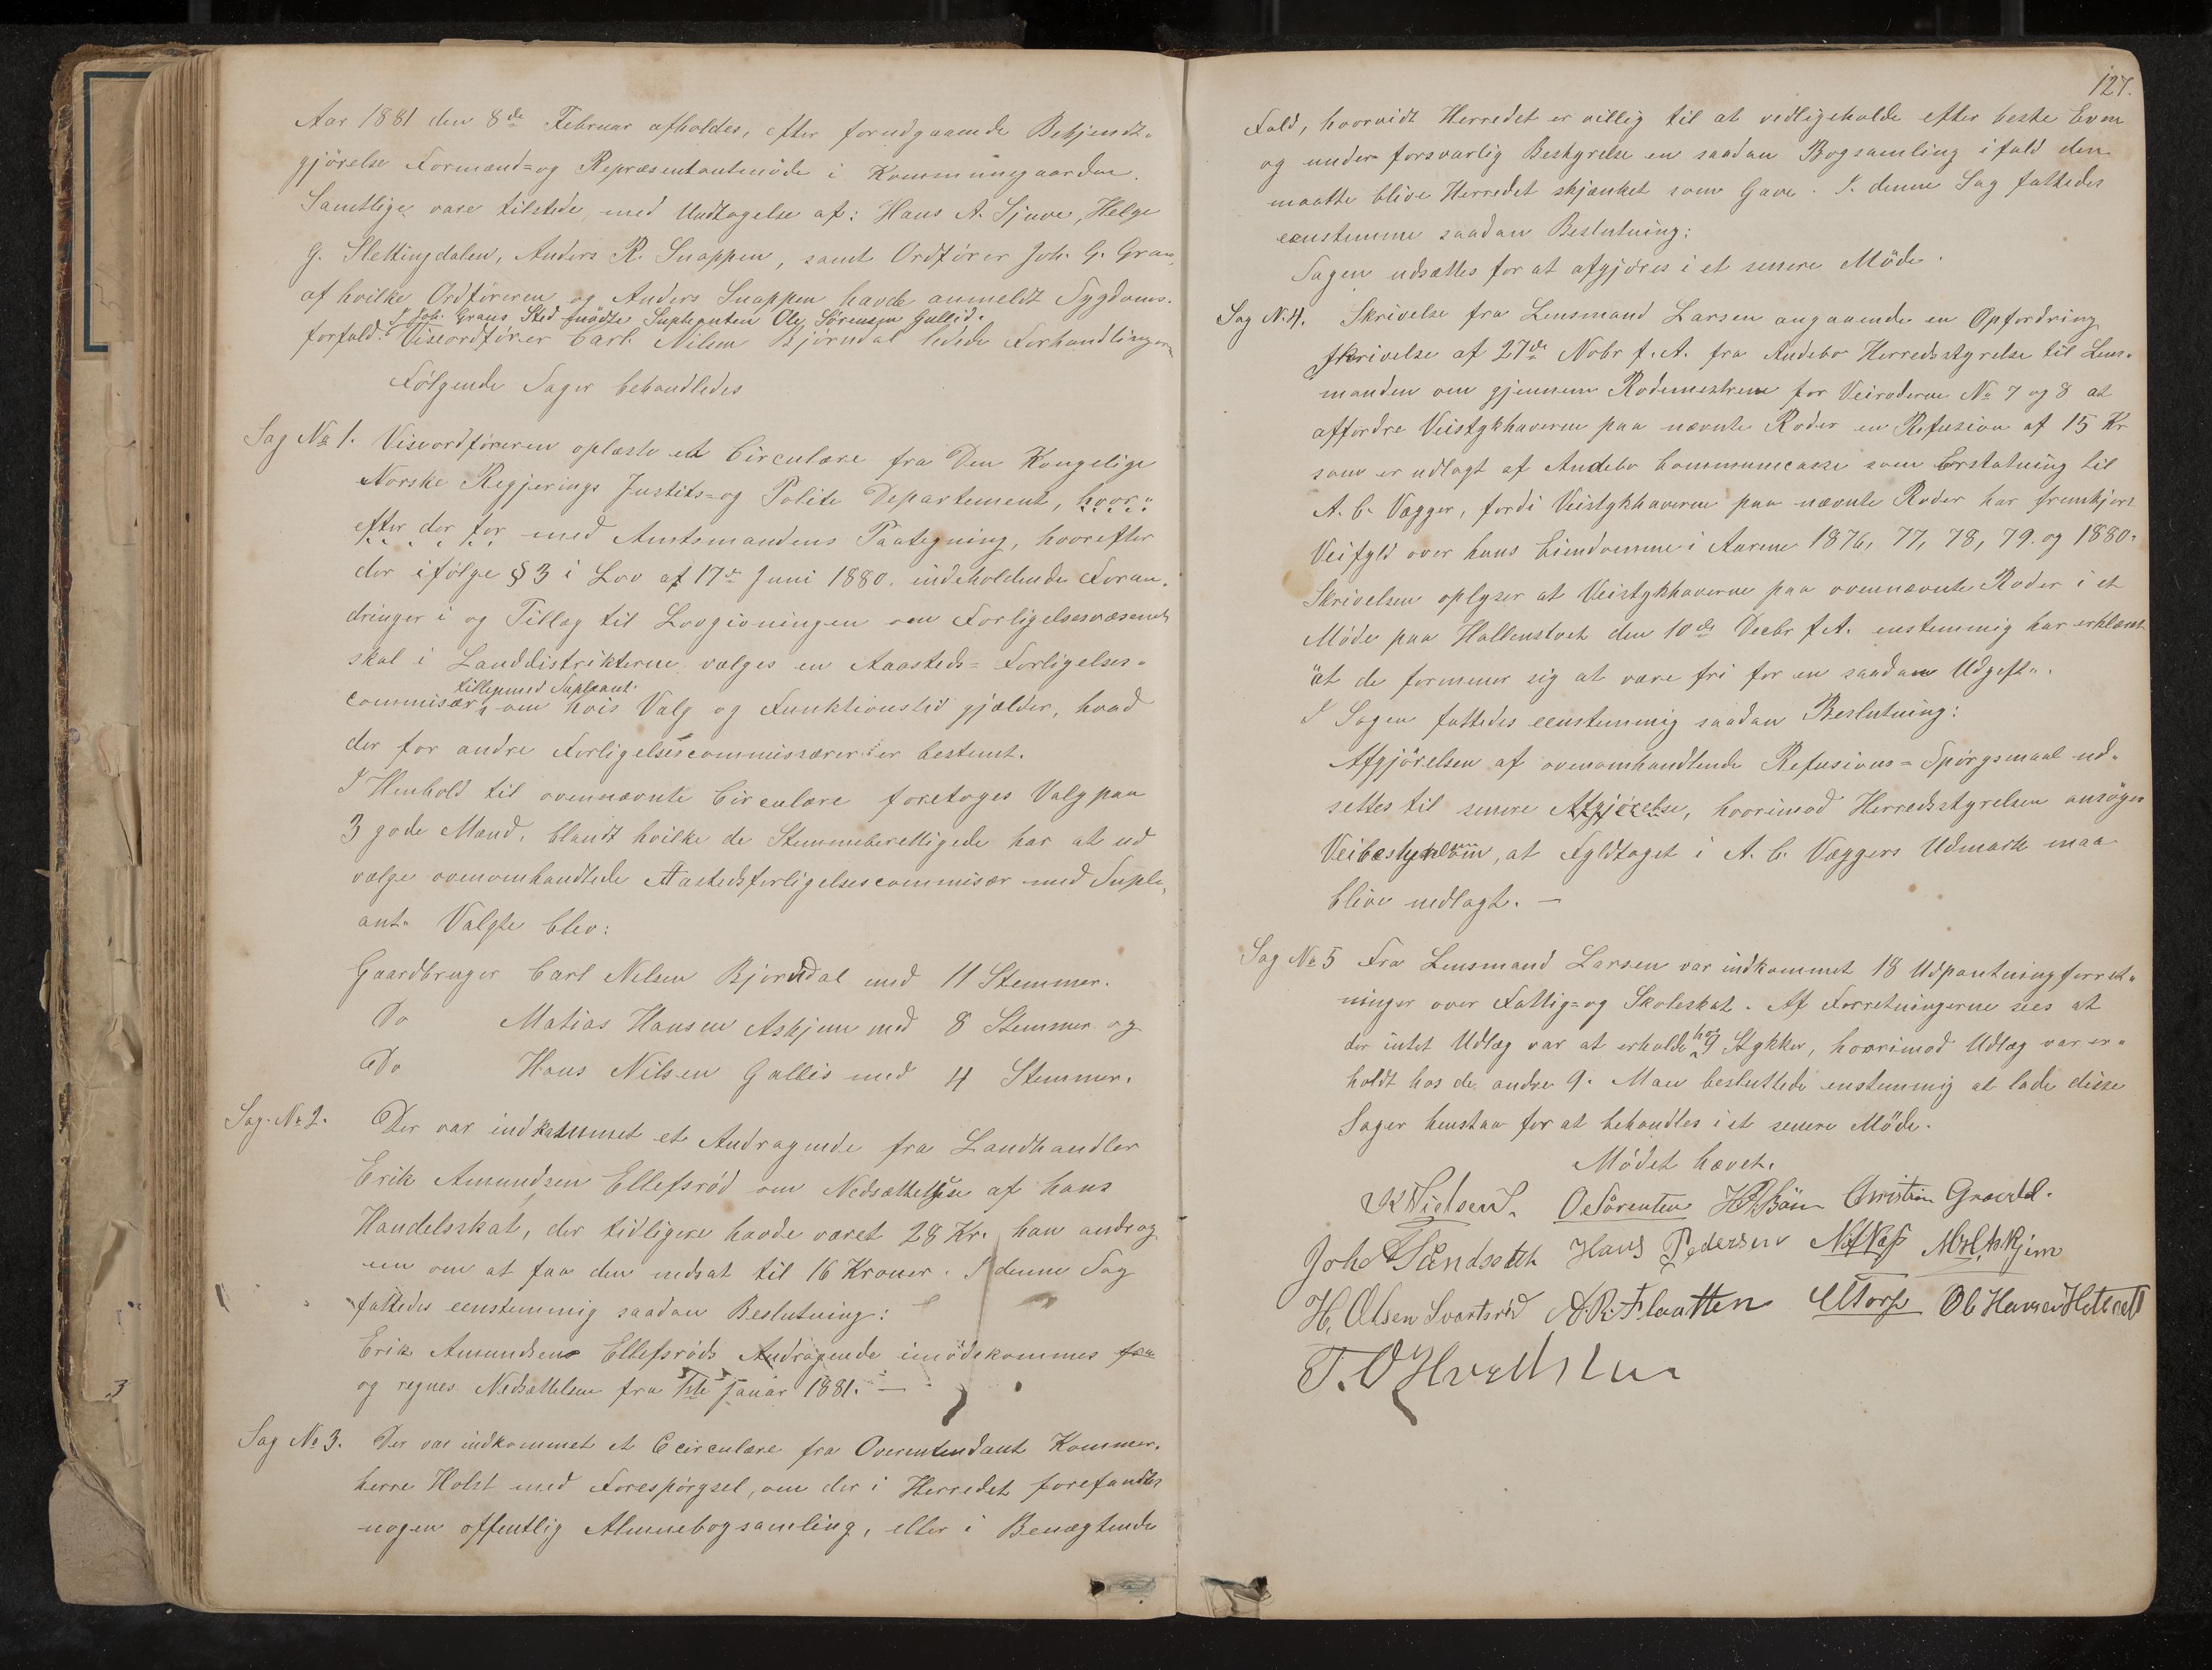 Aar 1881 den 8de Februar afholdes, efter forudgaaende Bekjendt-
gjörelse Formænd= og Repræsentantmöde i Kommunegaarden.
Samtlige vare tilstede, med Undtagelse af: Hans A. Sjuve, Helge
G. Slettingdalen, Anders R. Snappen, samt Ordförer Joh. G. Gran,
af hvilke Ordföreren og Anders Snappen havde anmeldt Sygdoms-
I Joh. Grans Sted mödte Supleanten Ole Sörensen Gallis.
forfald. Viseordförer Carl Nilsen Björndal ledede Forhandlingen
Fölgende Sager behandledes
Sag No 1. Viseordföreren oplæste et Circulære fra Den Kongelige
Norske Regjerings Justits= og Politi Departement, hvor-
efter der for med Amtsmandens Paategning, hvorefter
der ifölge § 3 i Lov af 17de Juni 1880. indeholdende Foran-
dringer i og Tillæg til Lovgivningen om Forligelsesvæsenet
skal i Landdistrikterne vælges en Aasteds= Forligelses-
tilligemed Supleant
commisær, om hvis Valg og Funktionstid gjælder, hvad
der for andre Forligelsescommissærer er bestemt.
I Henhold til ovennævnte Circulære foretoges Valg paa
3 gode Mænd, blandt hvilke de Stemmeberettigede har at ud
vælge ovenomhandlede Aastedsforligelsescommisær med Suple-
ant. Valgte blev:
Gaardbruger Carl Nilsen Bjørndal med 11 Stemmer.
Do Matias Hansen Askjem med 8 Stemmer og
Do Hans Nilsen Gallis med 4 Stemmer.
Sag No 2. Der var indkommet et Andragende fra Landhandler
Erik Amundsen Ellefsröd om Nedsættelse af hans
Handelsskat, der tidligere havde været 28 Kr. han androg
nu om at faa den nedsat til 16 Kroner. I denne Sag
fattedes eenstemmig saadan Beslutning:
Erik Amundsens Ellefsröds Andragende imödekommes fra
og regnes Nedsættelsen fra 1ste Januar 1881. —
Sag No 3. Der var indkommet et Circulære fra Overintendant Kammer-
herre Holst med Forespörgsel, om der i Herredet forefandtes
nogen offentlig Almuebogsamling, eller i Benægtende
127.
Fald, hvorvidt Herredet er villig til at vedligeholde efter beste Evne
og under forsvarlig Bestyrelse en saadan Bogsamling ifald den
maatte blive Herredet skjænket som Gave. I denne Sag fattedes
eenstemme saadan Beslutning:
Sagen udsættes for at afgjöres i et senere Möde.
Sag N. 4. Skrivelse fra Lensmand Larsen angaaende en Opfordring
Skrivelse af 27de Nobr f. A. fra Andebo Herredsstyrelse til Lens-
manden om gjennem Rodemestrene for Veiroderne No 7 og 8 at
affordre Veistykhaverne paa nævnte Roder en Refusion af 15 Kr
som er udlagt af Andebo Communecasse som Erstatning til
A. C. Vegger, fordi Veistykhaverne paa nævnte Roder har fremkjørt
Veifyld over hans Eiendomme i Aarene 1876, 77, 78, 79. og 1880.
Skrivelsen oplyser at Veistykhaverne paa ovennævnte Roder i et
Möde paa Hallenstvet den 10de Decbr f. A. enstemmig har erklæret
"at de formener sig at være fri for en saadan Udgift".
I Sagen fattedes eenstemmig saadan Beslutning:
Afgjörelsen af ovenomhandlende Refusions= Spörgsmaal ud-
settes til senere Afgjörelse, hvorimod Herredsstyrelsen ansöger
Veibestyrelsen, at Fyldtaget i A. C. Væggers Udmark maa
blive nedlagt. —
Sag No 5 Fra Lensmand Larsen var indkommet 18 Udpantningsforret-
ninger over Fattig= og Skoleskat. Af Forretningerne sees at
der intet Udlæg var at erholde hos 9 Stykker, hvorimod Udlæg var er-
holdt hos de andre 9. Man besluttede enstemmig at lade disse
Sager henstaa for at behandles i et senere Möde.
Mödet hævet.
O Sörensen Christian
Hans Pedersen
H. Olsen Svartsrød A. R. Flaatten